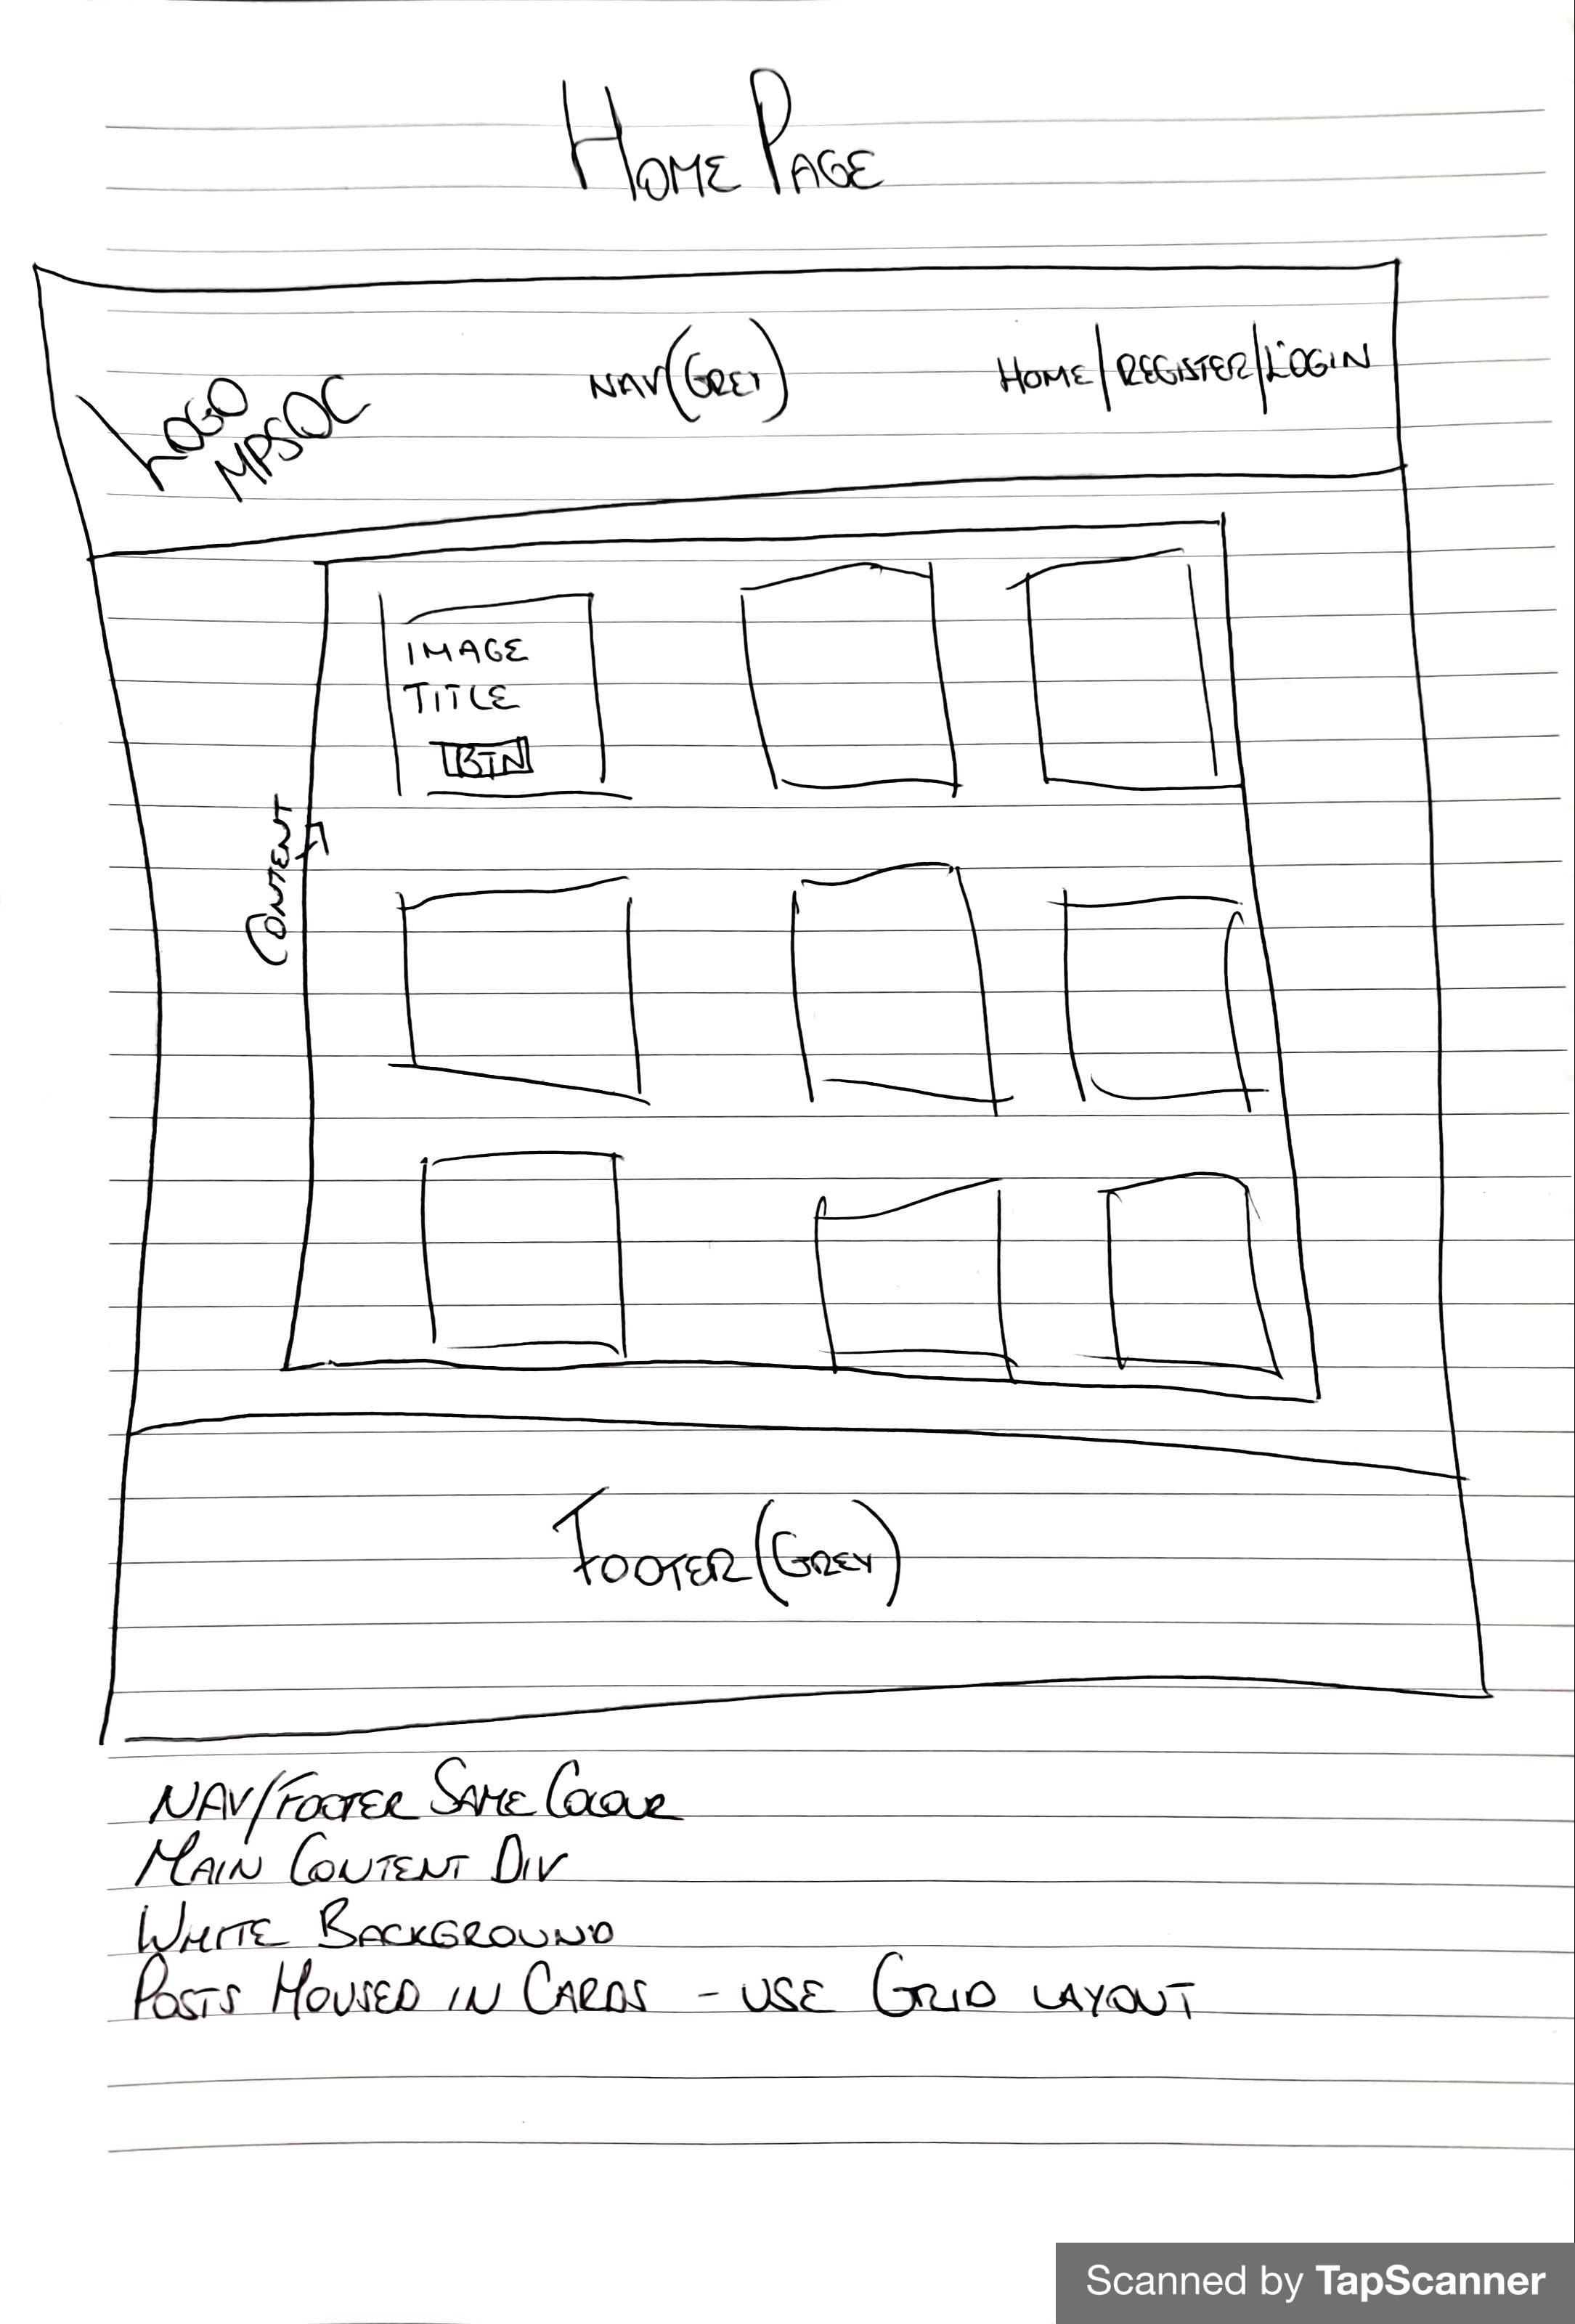 HOME PAGE
LOGO
MPSOC
NAV (GREY)
HOME/REGISTER/LOGIN
IMAGE
TITLE
BTN
CONTENT
FOOTER (GREY)
NAV/FOOTER SAME COLOUR
MAIN CONTENT DIV
WHITE BACKGROUND
POSTS HOUSED IN CARDS - USE GRID LAYOUT
Scanned by TapScanner